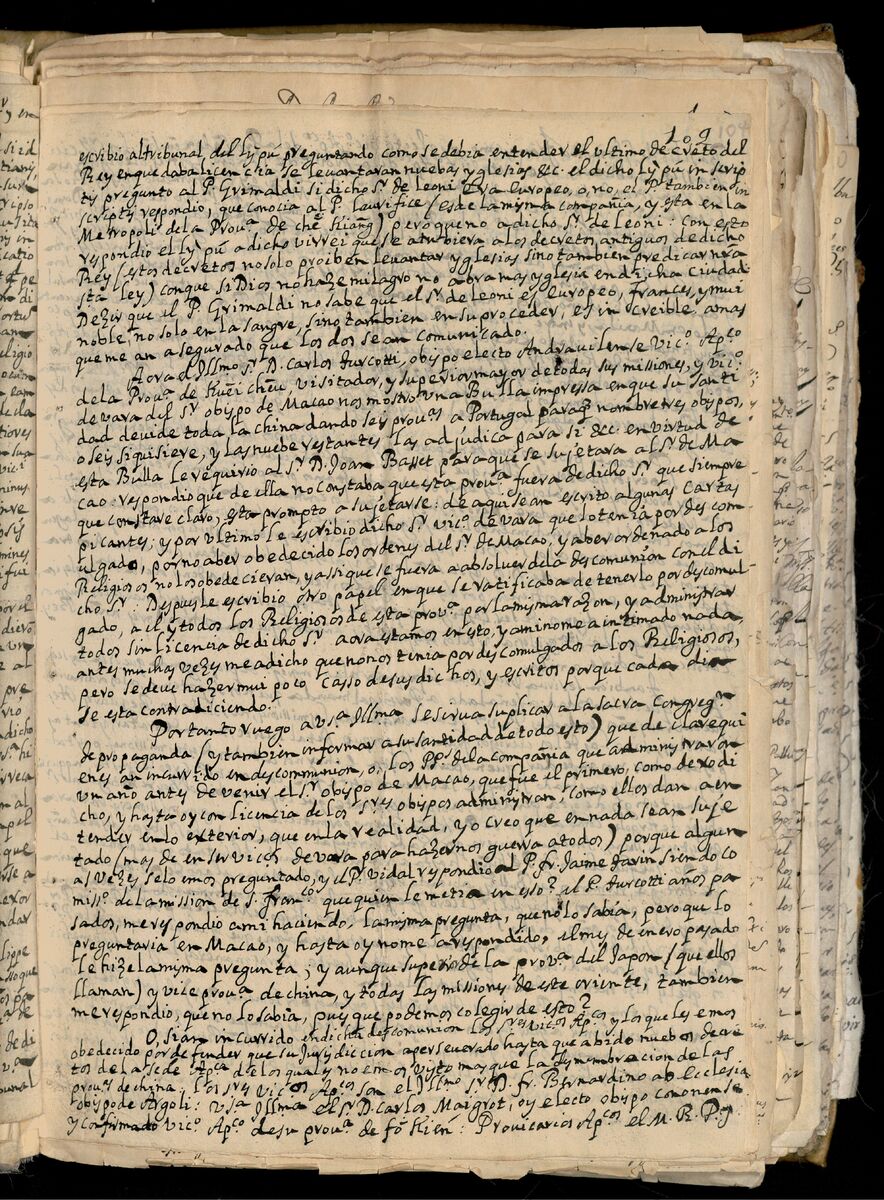 109
escribio al tribunal del Ly pú preguntando como se debia entender el ultimo decreto del
Rey en que daba licencia se levantaran nuebas yglesias &c. el dicho Ly pú in scrip
tis pregunto al P. Grimaldi si dicho Sr. de Leoni era europeo, o, no, el Pe. tambien in
scriptis respondio, que conocia al P. Laurifice (es de la mysma compañia, y esta en la
Metropoli de la Prova. de chē Kiāng) pero que no a dicho Sr. de Leoni: con esto
respondio el Ly pú a dicho virrei que se atubiera a los decretos antiguos de dicho
Rey (estos decretos no solo prociben levantar yglesias sino tambien predicar nra
sta ley) con que si Dios no haze milagro no abra mas yglesia en dicha ciudad
Dezir que el P. Grimaldi no sabe que el Sr. de Leoni es europeo, frances, y mui
noble, no solo en la sangre, sino tambien en su proceder, es increible: amas
que me an asegurado que los dos se an comunicado.
Aora el Illmo Sr. D. Carlos Turcotti, obispo electo Andravilense Vico. Apco
de la Prova. de Kuēi cheū, visitador, y superior maior de todas sus missiones, y vico.
de vara del Sr. obispo de Macao nos mostro una Bulla impressa en que su santi
dad devide toda la china dando seis provas a Portugal para q nombre tres obispos,
o seis si quisiere, y las nuebe restantes las adjudica para si &c. en virtud de
esta Bulla le requirio al Sr. D. Joan Basset para que se sujetara al Sr. de Ma
cao: respondio que de ella no constaba que esta prova. fuera de dicho Sr. que siempre
que constare claro, esta prompto a sujetarse: de aqui se an escrito algunas cartas
picantes; y por ultimo le escribio dicho Sr. vico. de vara que lo tenia por descom
ulgado, por no aber obedecido los ordenes del Sr. de Macao, y aber ordenado a los
Religiosos no los obedecieran, y assi que se fuera a absolver de la descomunion con el di
cho Sr.: Despues le escribio otro papel en que se ratificaba de tenerlo por descomul
gado, a el y todos los Religiosos de esta prova. por la mysma razon, y administrar
todos sin licencia de dicho Sr. aora estamos en esto, y a mi no me a intimado nada,
antes muchas vezes me a dicho que no nos tenia por descomulgados a los Religiosos,
pero se deve hazer mui poco casso de sus dichos, y escritos porque cada dia
se esta contradiciendo.
Por tanto ruego a vsa Illma se sirva suplicar a la sacra Congregn.
de propaganda (y tambien informar a su santidad de todo esto) que declare qui
enes an incurrido en descommunion, o, los PPs. de la compañia que administraron
un año antes de venir el Sr. obispo de Macao, que fue el primero, como dexo di
cho, y hasta oy con licencia de los Sres obispos administran, como ellos dan a en
tender en lo exterior, que en la realidad, yo creo que en nada se an suje
tado (mas de en ser vicos de vara para hazernos guerra a todos) porque algun
as vezes se lo emos preguntado, y el P. Vidal respondio al P. fr. Jaime Tarin siendo co
misso. de la mission de S. Franco. que quien le metia en esso? el P. Turcotti años pa
sados, me respondio a mi haciendo, la mysma pregunta, que no lo sabia, pero que lo
preguntaria en Macao, y hasta oy no me a respondido, el mes de enero pasado
le hize la mysma pregunta; y aunque superior de la prova. del Japon (que ellos
llaman) y vice prova. de china, y todas las missiones de este oriente, tambien
me respondio, que no lo sabia, pues que podemos colegir de esto?
O, si an incurrido en dicha descomunion los Sres vicos Apcos y los que les emos
obedecido por defender que su Jurisdiccion a perseverado hasta que a bido nuebos decre
tos de la sede Apca de los quales no emos visto mas que la dysmembracion de las
provas de china: los Sres vicos Apcos son el Illmo Sr. D. fr. Bernardino ab Ecclesia
obispo de Argoli: vsa Illma el Sr. D. Carlos Maigrot; oy electo obispo cononense
y confirmado vico Apco. de su prova. de fŏ Kien: Provicarios Apcos el M. R. P.